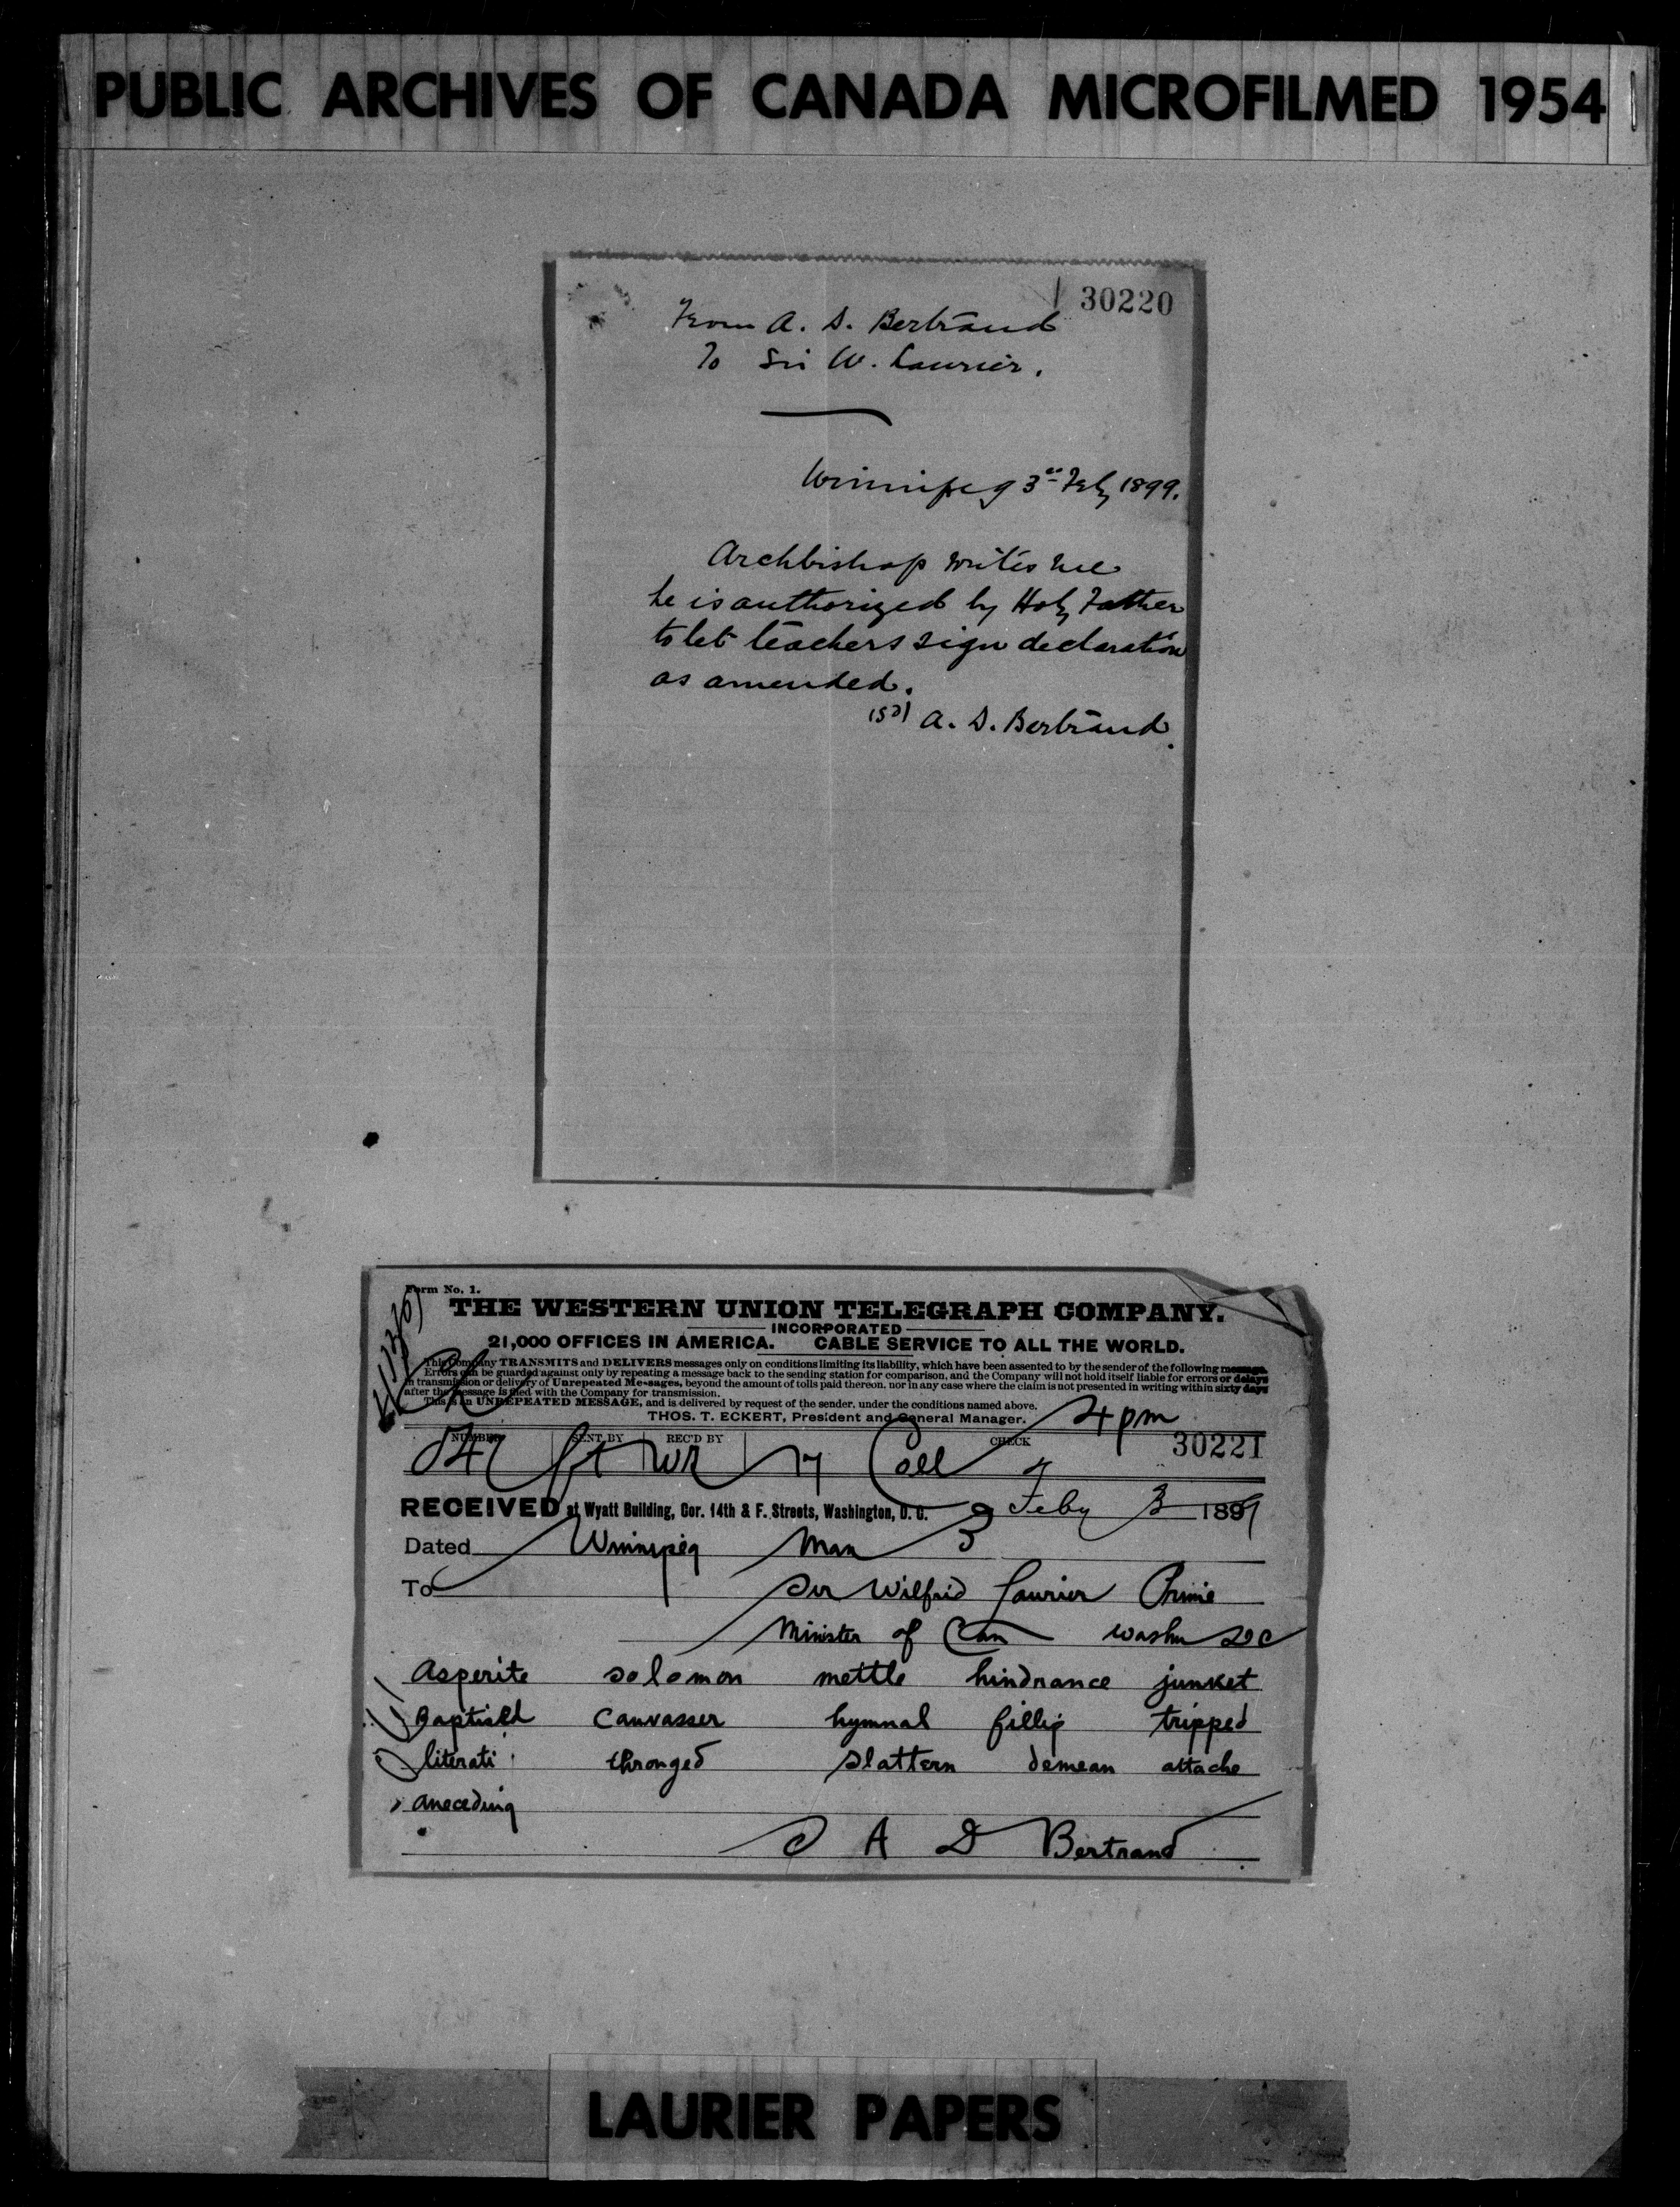 PUBLIC ARCHIVES OF CANADA MICROFILMED 1954
30220
From A. D. Bertrand
To Sir W. Laurier.
Winnipeg 3rd Feby 1899.
Archbishop writes me
he is authorized by Holy Father
to let teachers sign declaration
as amended.
(sd) A. D. Bertrand.
Form No. 1.
THE WESTERN UNION TELEGRAPH COMPANY.
INCORPORATED
21,000 OFFICES IN AMERICA. CABLE SERVICE TO ALL THE WORLD.
This Company TRANSMITS and DELIVERS messages only on conditions limiting its liability, which have been assented to by the sender of the following message.
Errors can be guarded against only by repeating a message back to the sending station for comparison, and the Company will not hold itself liable for errors or delays
in transmission or delivery of Unrepeated Messages, beyond the amount of tolls paid thereon, nor in any case where the claim is not presented in writing within sixty days
after the message is filed with the Company for transmission.
This is an UNREPEATED MESSAGE, and is delivered by request of the sender, under the conditions named above.
THOS. T. ECKERT, President and General Manager.
4 pm
NUMBER SENT BY REC'D BY CHECK
30221
17 Coll
RECEIVED at Wyatt Building, Cor. 14th & F. Streets, Washington, D. C. Feby 3 1899
Dated Winnipeg Man 3
To Sir Wilfrid Laurier Prime
Minister of Can Washn DC
Asperite solomon mettle hindrance junket
Baptised canvasser hymnal fillip tripped
literati thronged slattern demean attache
aneceding
A D Bertrand
LAURIER PAPERS